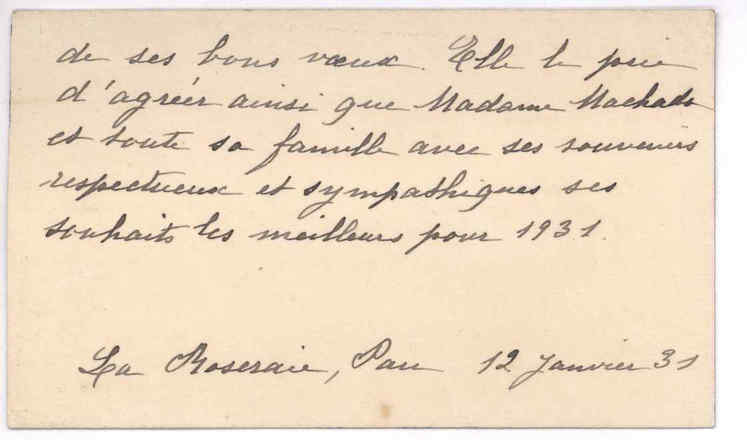 de ses bons vœux. Elle le prie
d'agréer ainsi que Madame Machado
et toute sa famille avec ses souvenirs
respectueux et sympathiques ses
souhaits les meilleurs pour 1931.
La Roseraie, Pau 12 Janvier 31